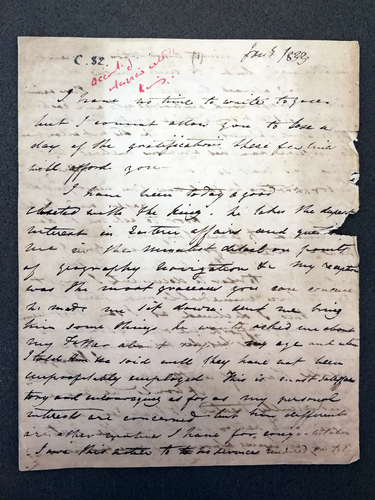 C. 32.
(1)
Jany 1833
account of
interview with
King.
I have no time to write to you
but I cannot allow you to lose a
day of the gratification these few lines
will afford you
I have been today a good
closeted with the King. he takes the deepest
interest in Eastern affairs and
me in the minutest detail on points
of geography navigation &c my reception
was the most gracious you can conceive
he made me sit down. and me bring
him some things he asked me about
my Father my age and when
I told him he said well they have not been
unprofitably employed This is most satisfac
tory and encouraging as far as my personal
interests are concerned but how different
are other matters I have for congratulation
I owe this to services